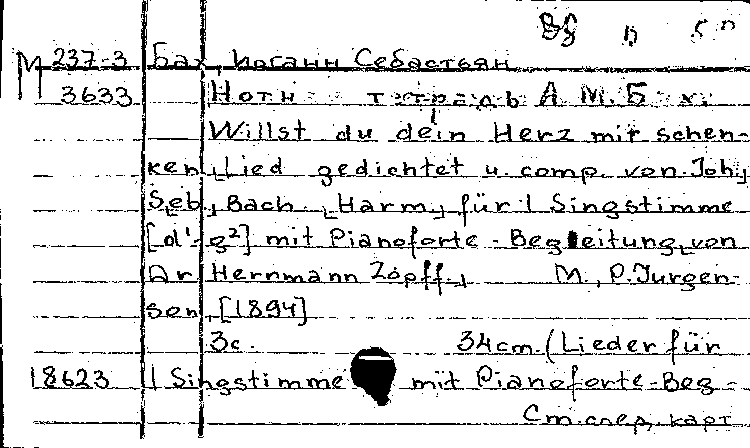 М 237-3 Бах, Иоганн Себастьян
3633 Нотн тетрадь А. М. Б
Willst du dein Herz mir schen-
ken, Lied gedichtet u. comp. von Joh.
Seb. Bach. Harm. für 1 Singstimme
[d¹-g²] mit Pianoforte-Begleitung von
Dr Hernmann Zopff. М., P. Jurgen-
son, [1894]
3c. 34cm. (Lieder für
18623 1 Singstimme mit Pianoforte-Beg-
См. след. карт